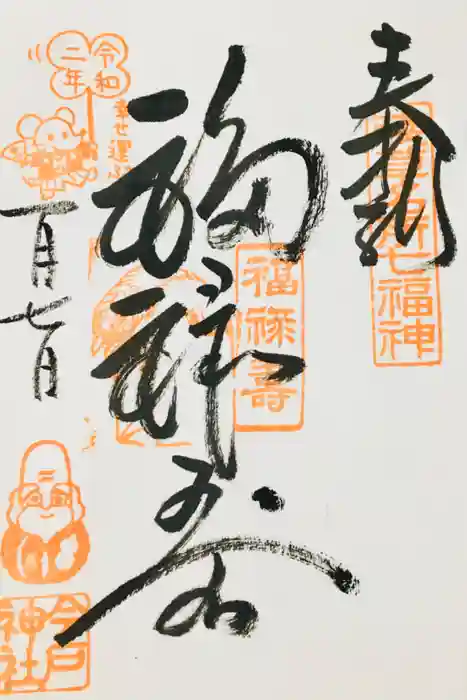 奉拝
七福神
福禄寿
福禄壽
令和
二年
幸せ運ぶ
一月七日
今戸
神社